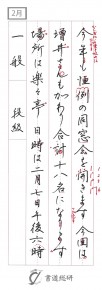 2月
今年も恒例の同窓会を開きます 今回は
増井さんもかわり合計十八名になります
場所は楽々亭 日時は二月七日午後六時
一般 段級
書道総研